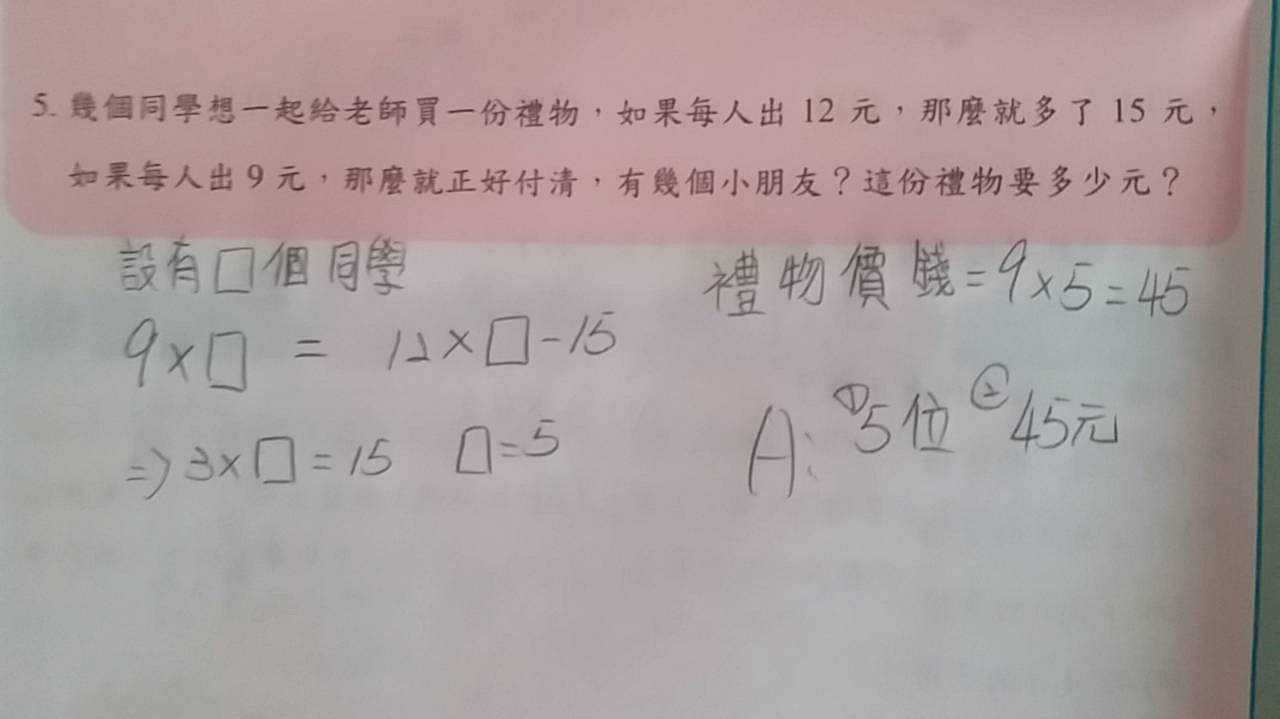 5. 幾個同學想一起給老師買一份禮物，如果每人出 12 元，那麼就多了 15 元，
如果每人出 9 元，那麼就正好付清，有幾個小朋友？這份禮物要多少元？
設有□個同學
9×□ = 12×□-15
⇒ 3×□=15 □=5
禮物價錢=9×5=45
A: ①5位 ②45元